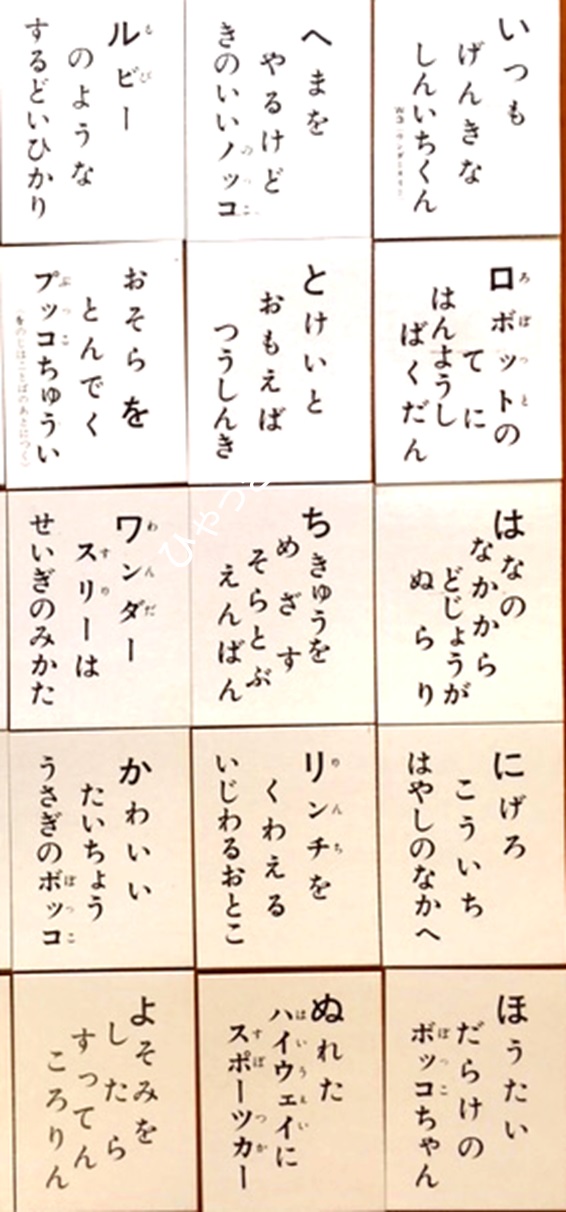 いつも
げんきな
しんいちくん
へまを
やるけど
きのいいノッコ
ルビー
のような
するどいひかり
ロボットの
てに
はんようし
ばくだん
とけいと
おもえば
つうしんき
おそらを
とんでく
プッコちゅうい
(をのじはことばのあとにつく)
はなの
なかから
どじょうが
ぬらり
ちきゅうを
めざす
そらとぶ
えんばん
ワンダー
スリーは
せいぎのみかた
にげろ
こういち
はやしのなかへ
リンチを
くわえる
いじわるおとこ
かわいい
たいちょう
うさぎのボッコ
ほうたい
だらけの
ボッコちゃん
ぬれた
ハイウェイに
スポーツカー
よそみを
したら
すってん
ころりん